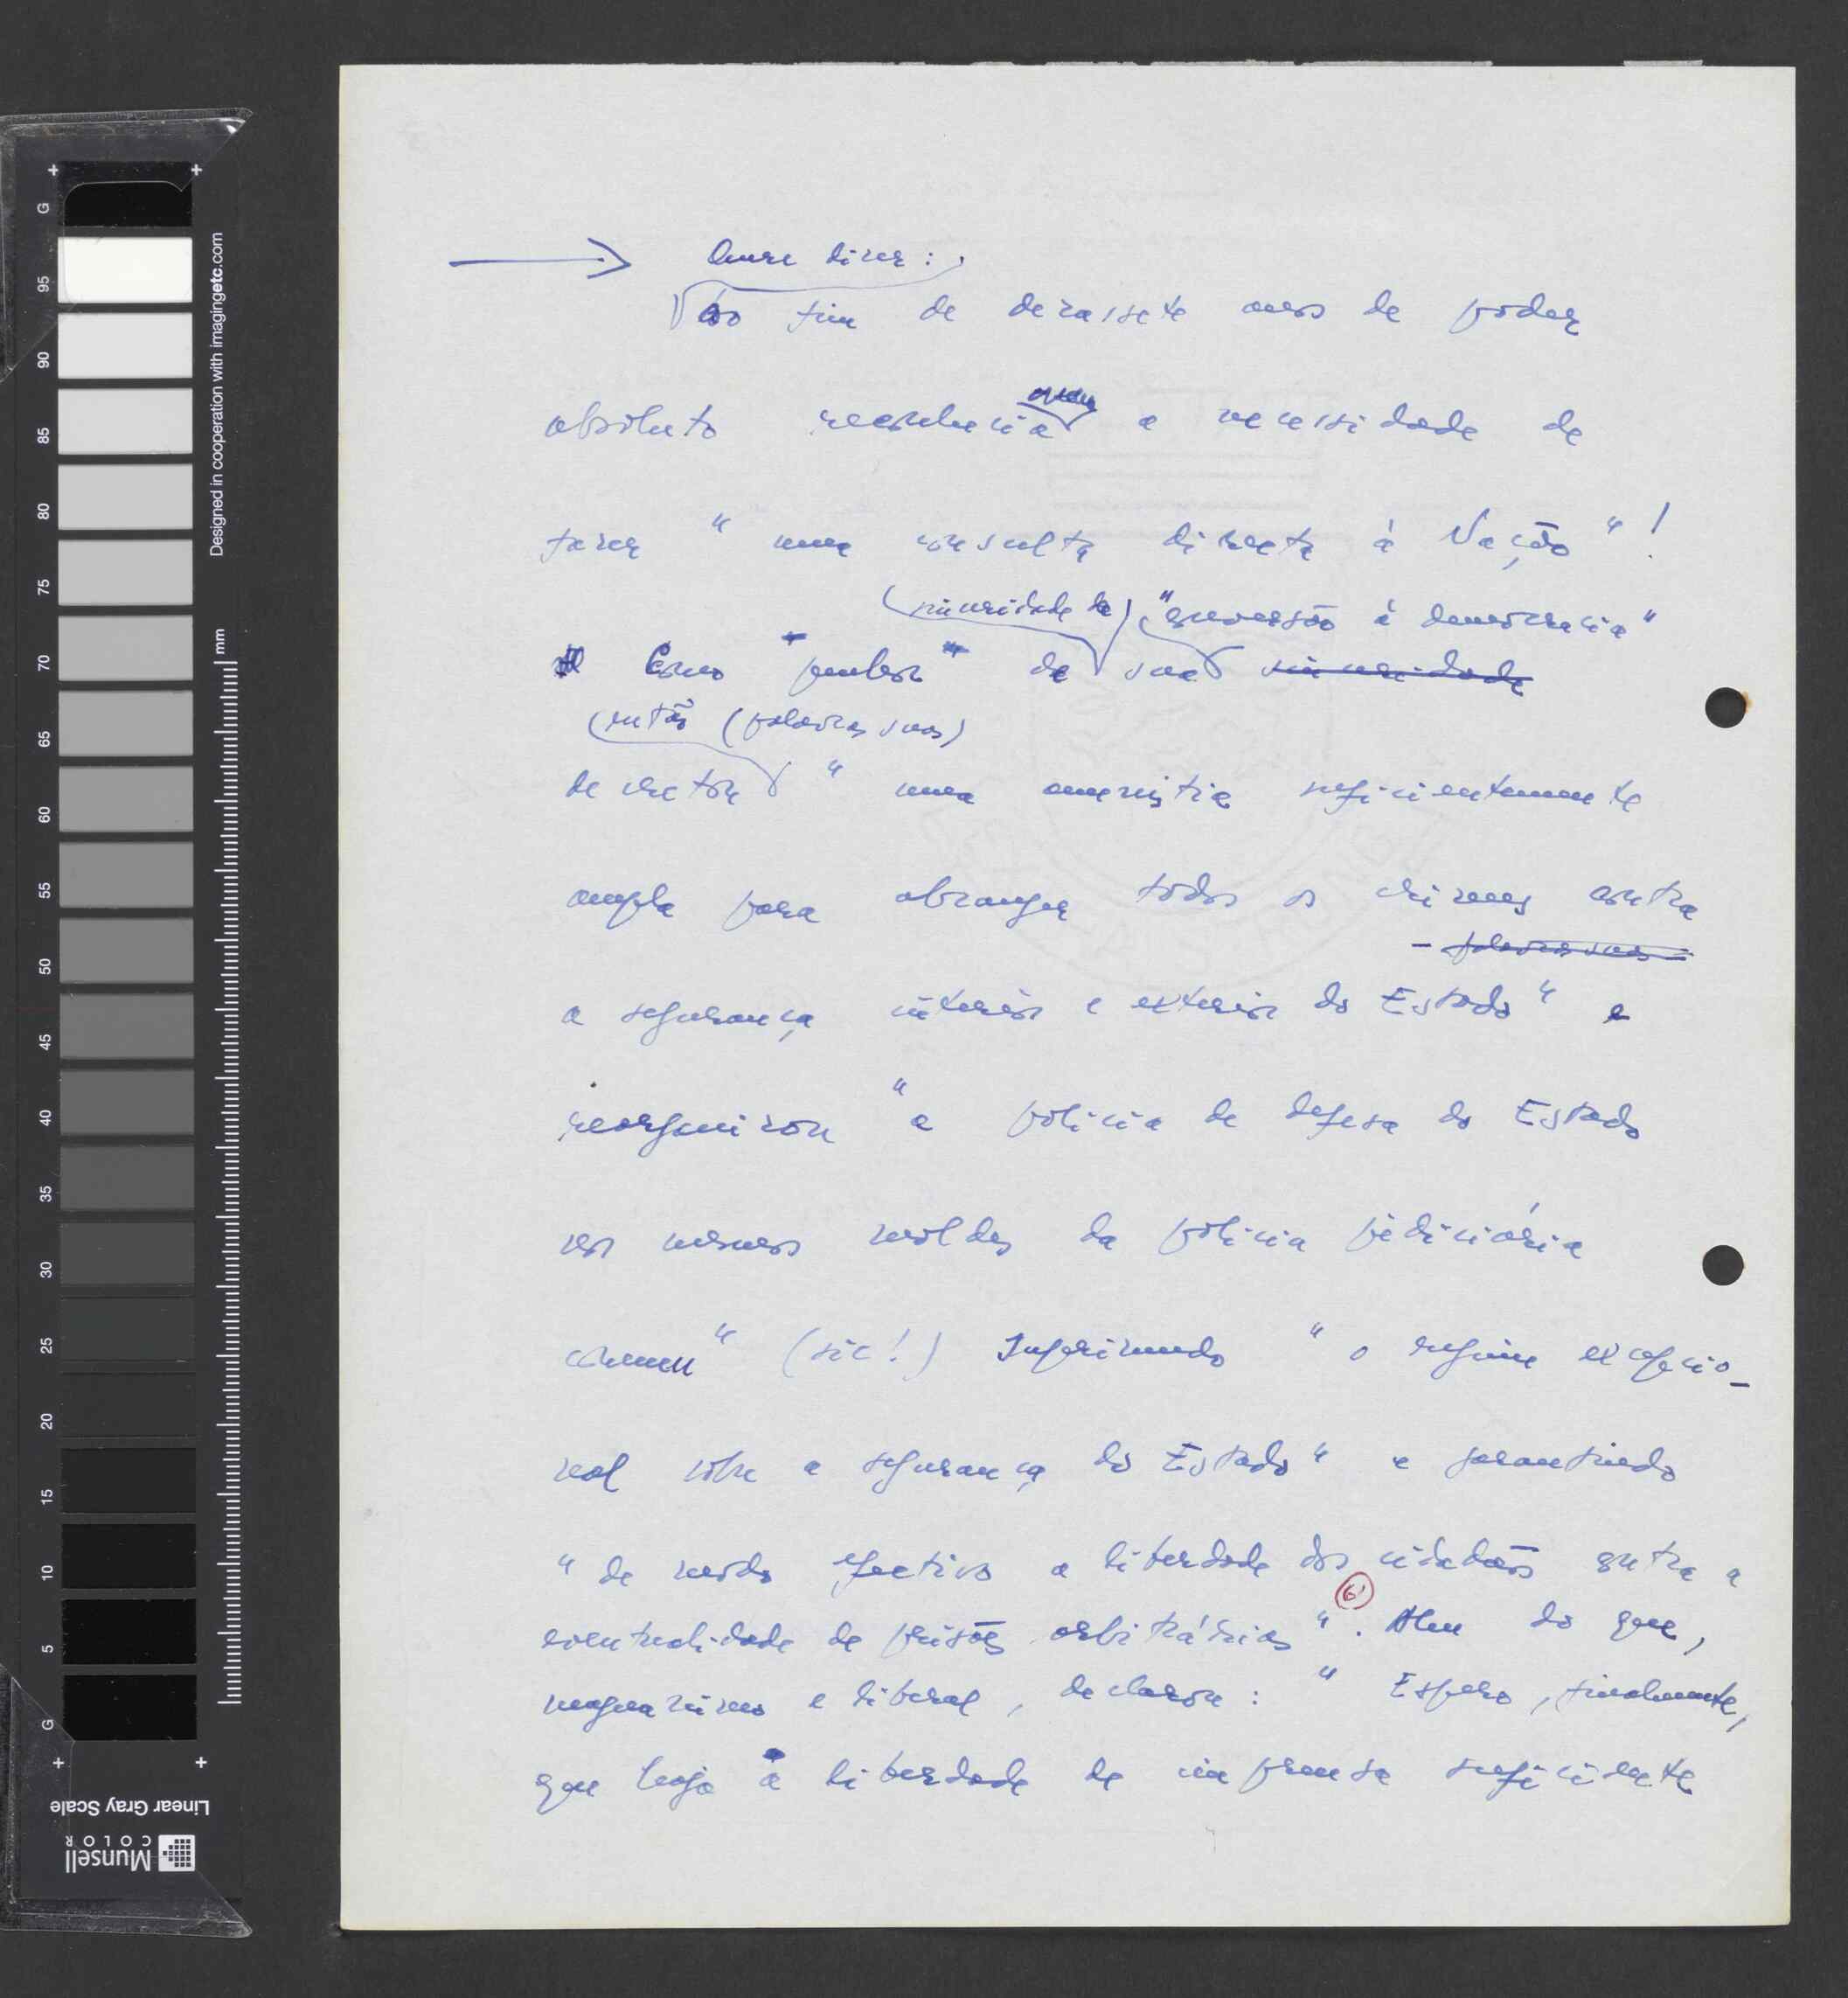 Quere dizer:
Ao fim de dezassete anos de poder
absoluto reconhecia a necessidade de
fazer "uma consulta directa à Nação"!
(sinceridade da) "reversão à democracia"
Como penhor da sua sinceridade
então (palavras suas)
decretou "uma amnistia suficientemente
ampla para abranger todos os crimes contra
- palavras suas -
a segurança interior e exterior do Estado" e
reorganizou "a polícia de defesa do Estado
nos mesmos moldes da polícia judiciária
comum" (sic!) suprimindo "o regime excepcio-
nal sobre a segurança do Estado" e garantindo
"de modo efectivo a liberdade dos cidadãos contra a
eventualidade de prisões arbitrárias". Alem do que,
magnanimo e liberal, declarou: "Espero, finalmente,
que haja a liberdade de imprensa suficiente
G 95 90 85 80 75 70 65 60 55 50 45 40 35 30 25 20 15 10 5 G
Designed in cooperation with imagingetc.com
mm
Linear Gray Scale
Munsell
COLOR